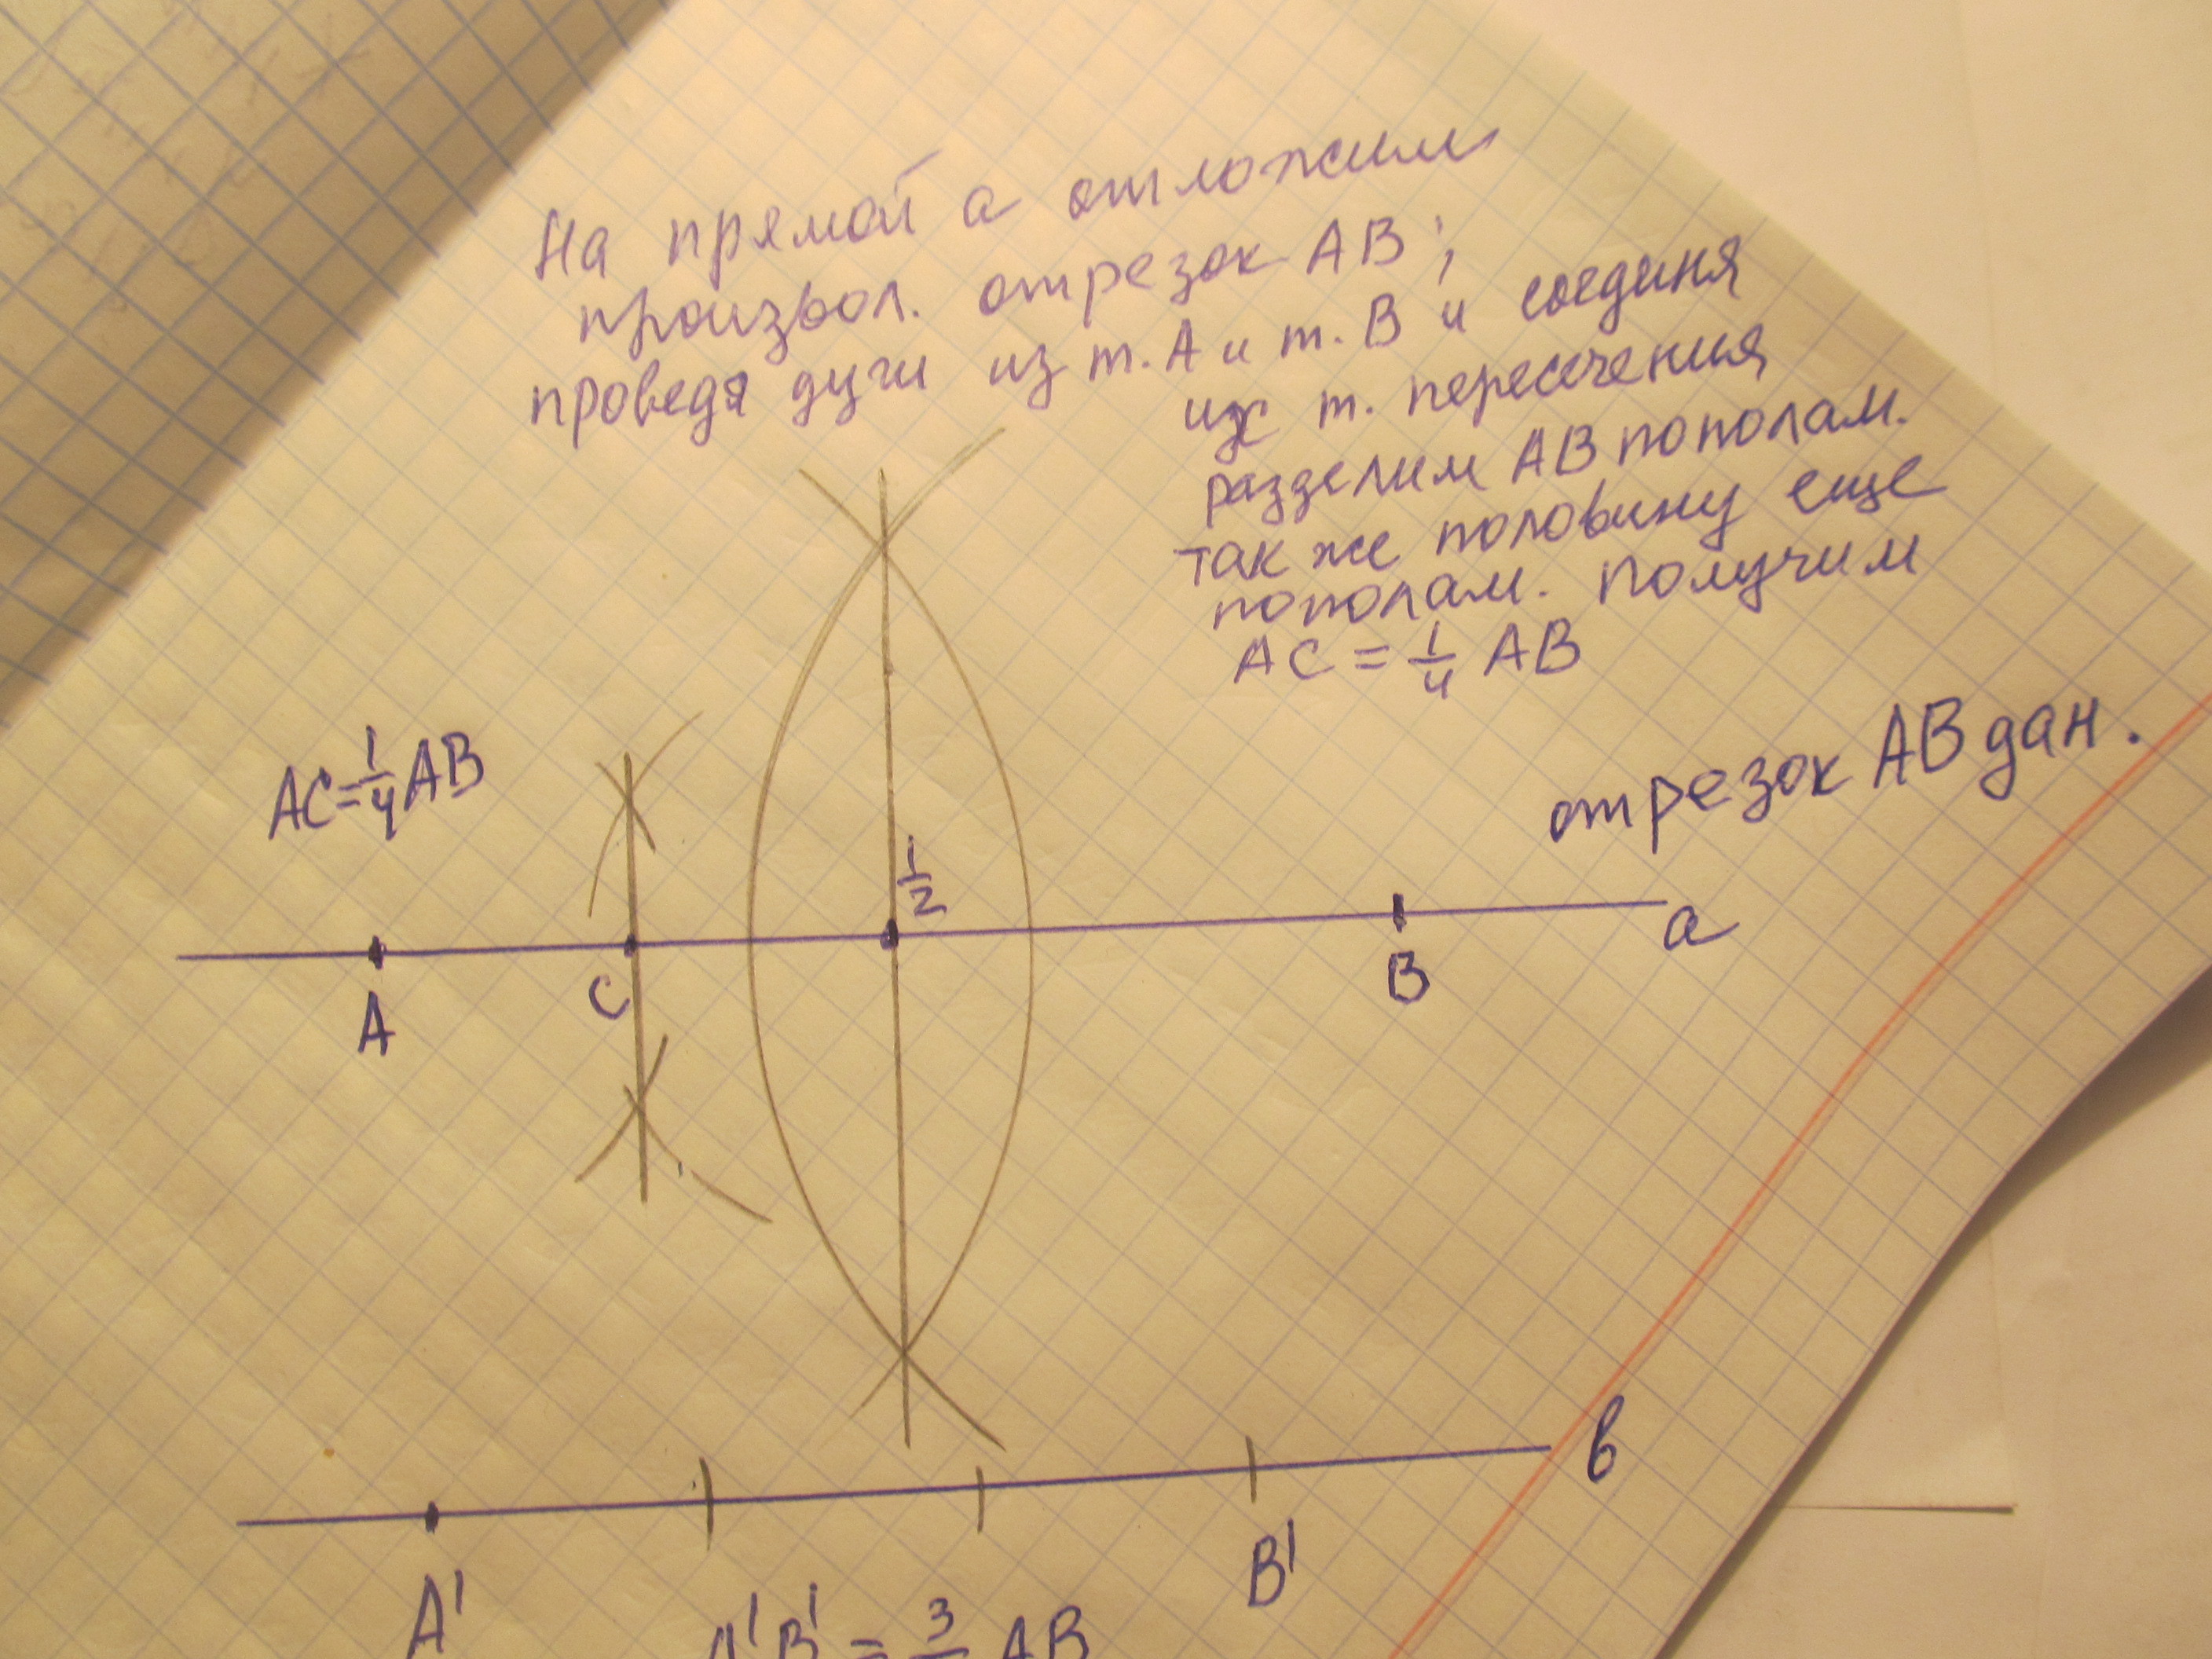 На прямой а отложим
произвол. отрезок АВ;
проведя дуги из т. А и т. В и соединя
их т. пересечения
разделим АВ пополам.
так же половину еще
пополам. Получим
АС = 1/4 АВ
отрезок АВ дан.
АС = 1/4 АВ
1/2
А
С
В
а
в
А'
В'
А'В' = 3/ АВ